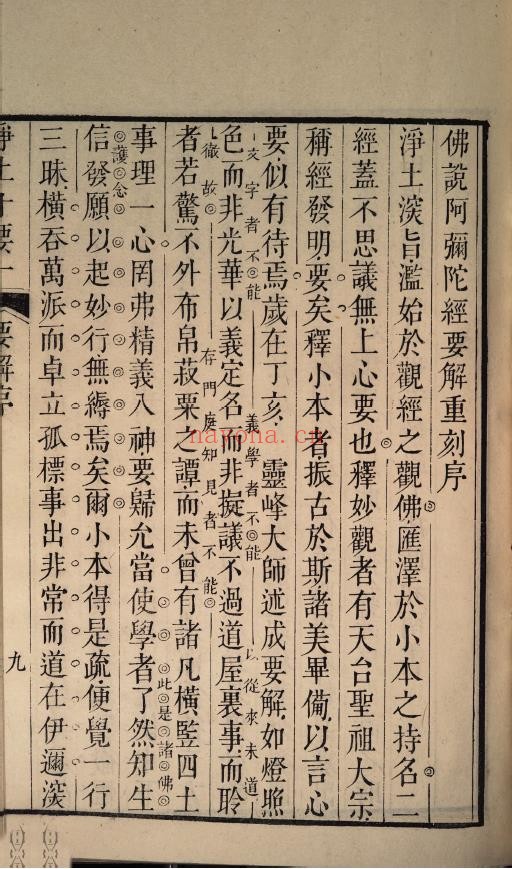 佛說阿彌陀經要解重刻序
淨土深旨濫始於觀經之觀佛匯澤於小本之持名二
經蓋不思議無上心要也釋妙觀者有天台聖祖大宗
稱經發明要矣釋小本者振古於斯諸美畢備以言心
要似有待焉歲在丁亥 靈峰大師述成要解如燈照
文字者不能 義學者不能 以從來未道
色而非光華以義定名而非擬議不過道屋裏事而聆
徹故 存門庭知見者不能
者若驚不外布帛菽粟之譚而未曾有諸凡橫豎四土
事理一心罔弗精義入神要歸允當使學者了然知生
此是諸佛
護念
信發願以起妙行無縟焉矣爾小本得是疏便覺一行
三昧橫吞萬派而卓立孤標事出非常而道在伊邇深
淨土十要一 要解序 九
nayona.cn